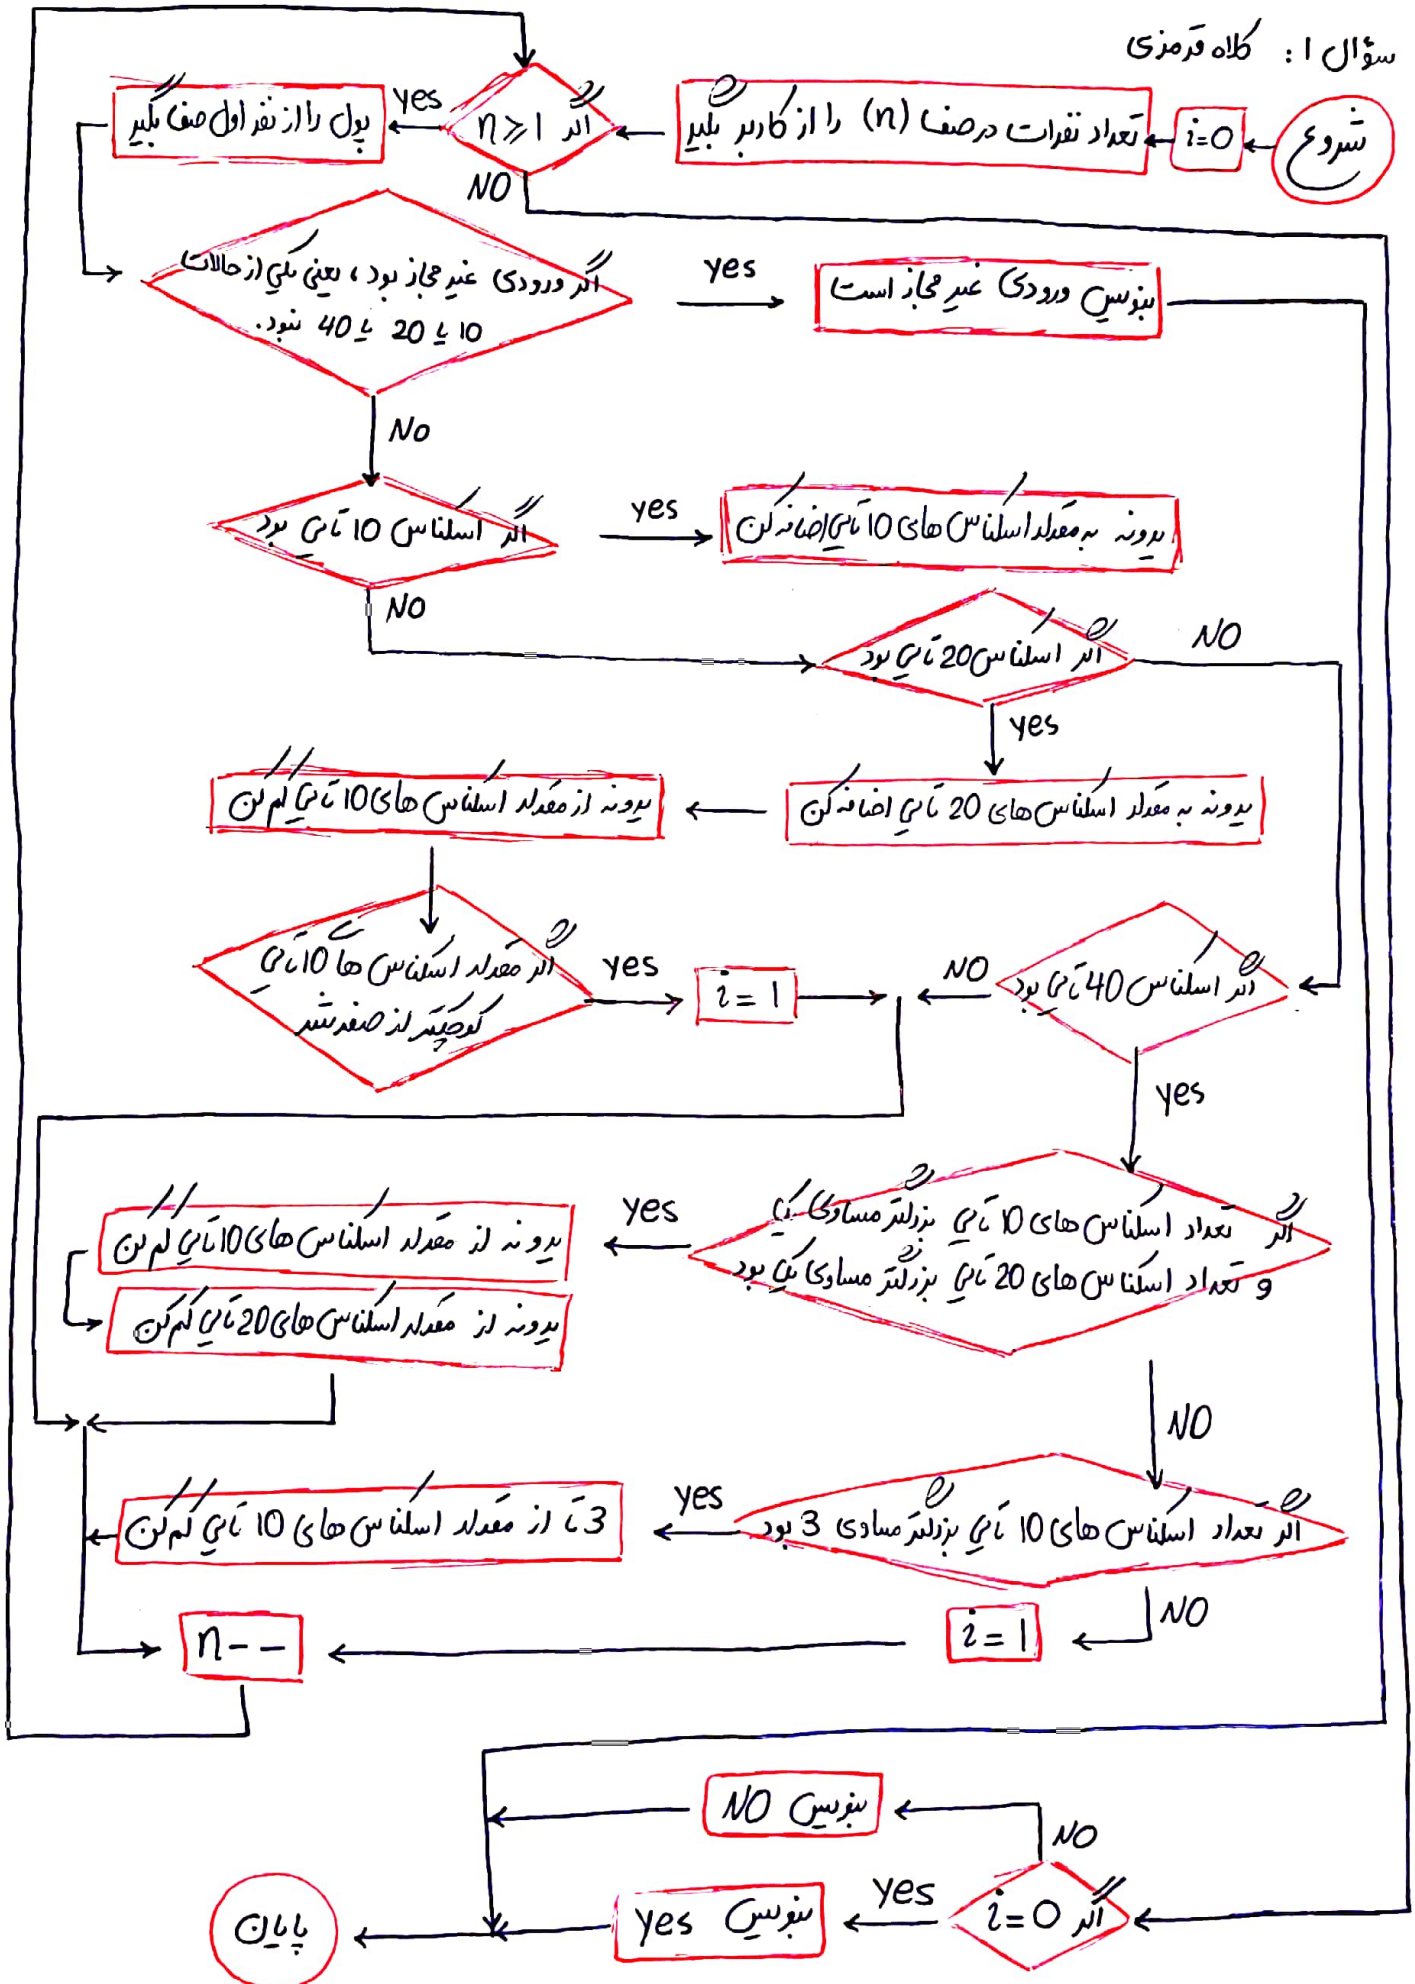 سؤال ۱: کلاه قرمزی
شروع
i=0
تعداد نفرات در صف (n) را از کاربر بگیر
اگر n≥1
yes
پول را از نفر اول صف بگیر
NO
اگر ورودی غیر مجاز بود، یعنی یکی از حالات
10 یا 20 یا 40 نبود.
yes
بنویس ورودی غیر مجاز است
NO
اگر اسکناس 10 تائی بود
yes
یدونه به مقدار اسکناس های 10 تائی اضافه کن
NO
اگر اسکناس 20 تائی بود
NO
yes
یدونه به مقدار اسکناس های 20 تائی اضافه کن
یدونه از مقدار اسکناس های 10 تائی کم کن
اگر مقدار اسکناس های 10 تائی
کوچکتر از صفر شد
yes
i=1
NO
اگر اسکناس 40 تائی بود
yes
اگر تعداد اسکناس های 10 تائی بزرگتر مساوی یک
و تعداد اسکناس های 20 تائی بزرگتر مساوی یک بود
yes
یدونه از مقدار اسکناس های 10 تائی کم کن
یدونه از مقدار اسکناس های 20 تائی کم کن
NO
اگر تعداد اسکناس های 10 تائی بزرگتر مساوی 3 بود
yes
3 تا از مقدار اسکناس های 10 تائی کم کن
NO
i=1
n--
بنویس NO
NO
اگر i=0
yes
بنویس yes
پایان